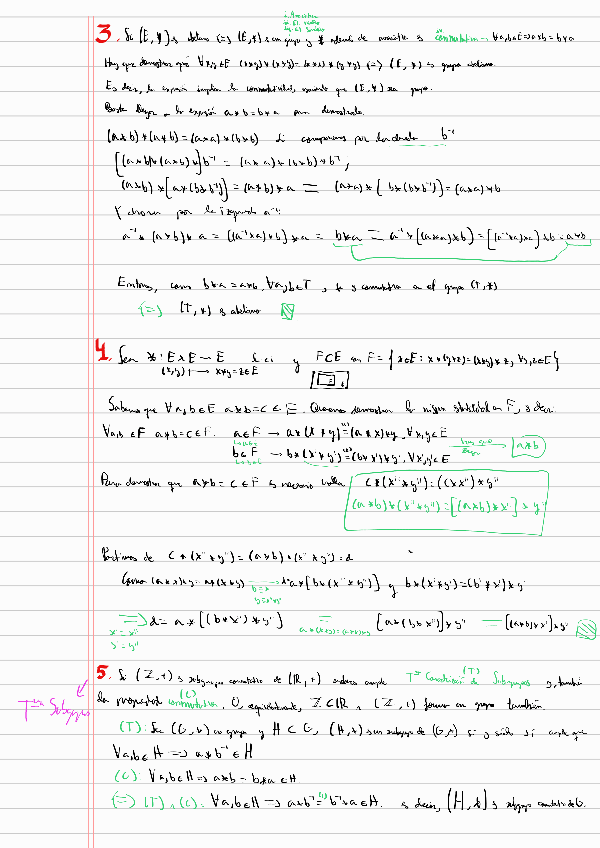 3. Si (E,*) es abeliano (=) (E,*) es un grupo y * además de asociativa es conmutativa → ∀a,b∈E => a*b = b*a
Hay que demostrar que ∀x,y∈E (x*y)*(x*y) = (x*x)*(y*y) (=) (E,*) es grupo abeliano.
Es decir, la expresión implica la conmutatividad, sabiendo que (E,*) sea grupo.
Basta llegar a la expresión a*b = b*a para demostrarlo.
(a*b)*(a*b) = (a*a)*(b*b) Si componemos por la derecha b⁻¹
[(a*b)*(a*b)]*b⁻¹ = (a*a)*(b*b)*b⁻¹,
(a*b)*[a*(b*b⁻¹)] = (a*b)*a = (a*a)*(b*(b*b⁻¹)) = (a*a)*b
Y ahora por la izquierda a⁻¹:
a⁻¹*(a*b)*a = ((a⁻¹*a)*b)*a = b*a = a⁻¹*[(a*a)*b] = [(a⁻¹*a)*a]*b = a*b
Entonces, como b*a = a*b, ∀a,b∈T, * es conmutativa en el grupo (T,*)
(=) (T,*) es abeliano
4. Sea *: E×E → E l.c.i y F⊂E con F = {x∈E: x*(y*z) = (x*y)*z, ∀y,z∈E}
(x,y) → x*y = z∈E
Sabemos que ∀a,b∈E a*b = c∈E. Queremos demostrar la misma estabilidad en F, es decir
∀a,b∈F a*b = c∈F. a∈F → a*(x*y) = (a*x)*y, ∀x,y∈E
b∈F → b*(x'*y') = (b*x')*y', ∀x',y'∈E hay que llegar a*b
Para demostrar que a*b = c∈F es necesario c*(x''*y'') = (c*x'')*y''
(a*b)*(x''*y'') = [(a*b)*x'']*y''
Partimos de c*(x''*y'') = (a*b)*(x''*y'') = d
Como (a*x)*y = a*(x*y) b=x y=x''*y'' a*[b*(x''*y'')] y b*(x'*y') = (b*x')*y'
=> d = a*[(b*x'')*y''] = a*(x*y)=(a*x)*y [a*(b*x'')]*y'' = [(a*b)*x'']*y''
x'=x''
y'=y''
5. Si (Z,+) es subgrupo conmutativo de (R,+) entonces cumple T<sup>ma</sup> Caracterización de Subgrupos (T) y, también
la propiedad conmutativa (C). O, equivalentemente, Z⊂R y (Z,+) forma un grupo también.
T<sup>ma</sup> Subgrupos
(T): Sea (G,*) un grupo y H⊂G, (H,*) es un subgrupo de (G,*) si y sólo si cumple que
∀a,b∈H => a*b⁻¹∈H
(C): ∀a,b∈H => a*b = b*a∈H
(=) (T) y (C): ∀a,b∈H => a*b⁻¹ = b⁻¹*a∈H. es decir, (H,*) es subgrupo conmutativo de G.